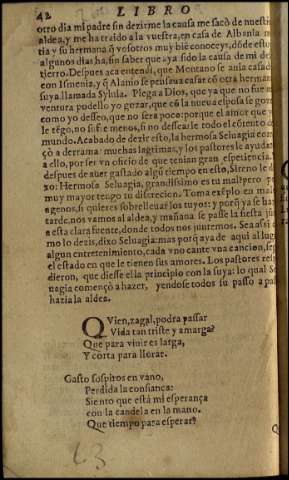 42 LIBRO
otro dia mi padre sin dezirme la causa me sacò de nuestra
aldea, y me ha traido a la vuestra, en casa de Albania mi
tia y su hermana q̃ vosotros muy biẽ conoceys, dõde estoy
algunos dias ha, sin saber que aya sido la causa de mi des
tierro. Despues aca entendi, que Montano se ansia casado
con Ismenia, y q̃ Alanio se pensaua casar cõ otra hermana
suya, llamada Syluia. Plega a Dios, que ya que no fue mi
ventura podello yo gozar, que cõ la nueua esposa se goze
como yo desseo, que no sera poco: porque el amor que yo
le tẽgo, no sufre menos, sino dessearle todo el cõtento del
mundo. Acabado de dezir esto, la hermosa Seluagia comẽ
çò a derramar muchas lagrimas, y los pastores le ayudaron
a ello, por ser vn oficio de que tenian gran esperiencia. Y
despues de auer gastado algũ tiempo en esto, Sireno le di
xo: Hermosa Seluagia, grandissimo es tu mal, pero por
muy mayor tengo tu discrecion. Toma exẽplo en males
agenos, si quieres sobrelleuar los tuyos: y porq̃ ya se haze
tarde, nos vamos al aldea, y mañana se passe la fiesta junto
a esta clara fuente, donde todos nos juntemos. Sea assi co
mo lo dezis, dixo Seluagia: mas porq̃ aya de aqui al lugar
algun entretenimiento, cada vno cante vna cancion, segũ
el estado en que le tienen sus amores. Los pastores respon
dieron, que diesse ella principio con la suya: lo qual Sel
uagia começò a hazer, yendose todos su passo a passo
hazia la aldea.
QVien, zagal, podra passar
Vida tan triste y amarga?
Que para viuir es larga,
Y corta para llorar.
Gasto sospiros en vano,
Perdida la confiança:
Siento que está mi esperança
con la candela en la mano.
Que tiempo para esperar?